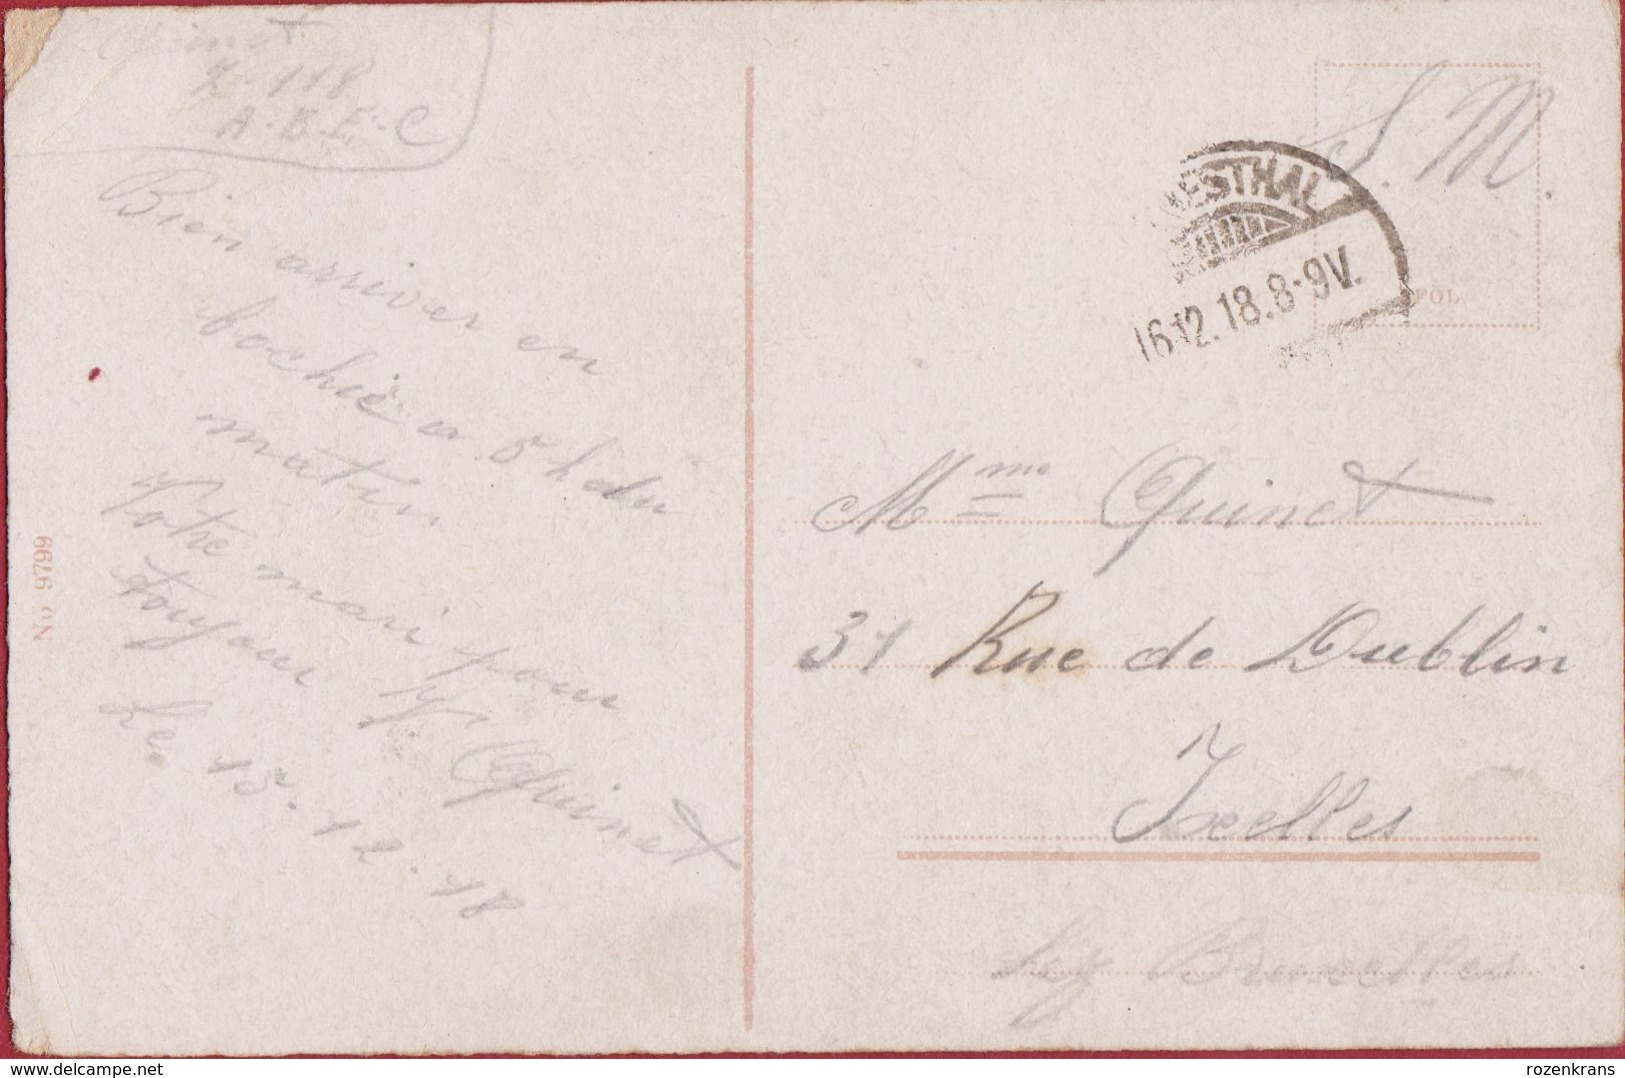 Quinet
Z-118
A-B-E-C
Bien arriver en
bochie a 5 h du
matin
Votre mari pour
toujour
Quinet
Le 15.12.18
No 9799
S. M.
ESTHAL
16.12.18.8-9V.
FOL
Mme Quinet
31 Rue de Dublin
Ixelles
Lez Bruxelles
delcampe.net
rozenkrans